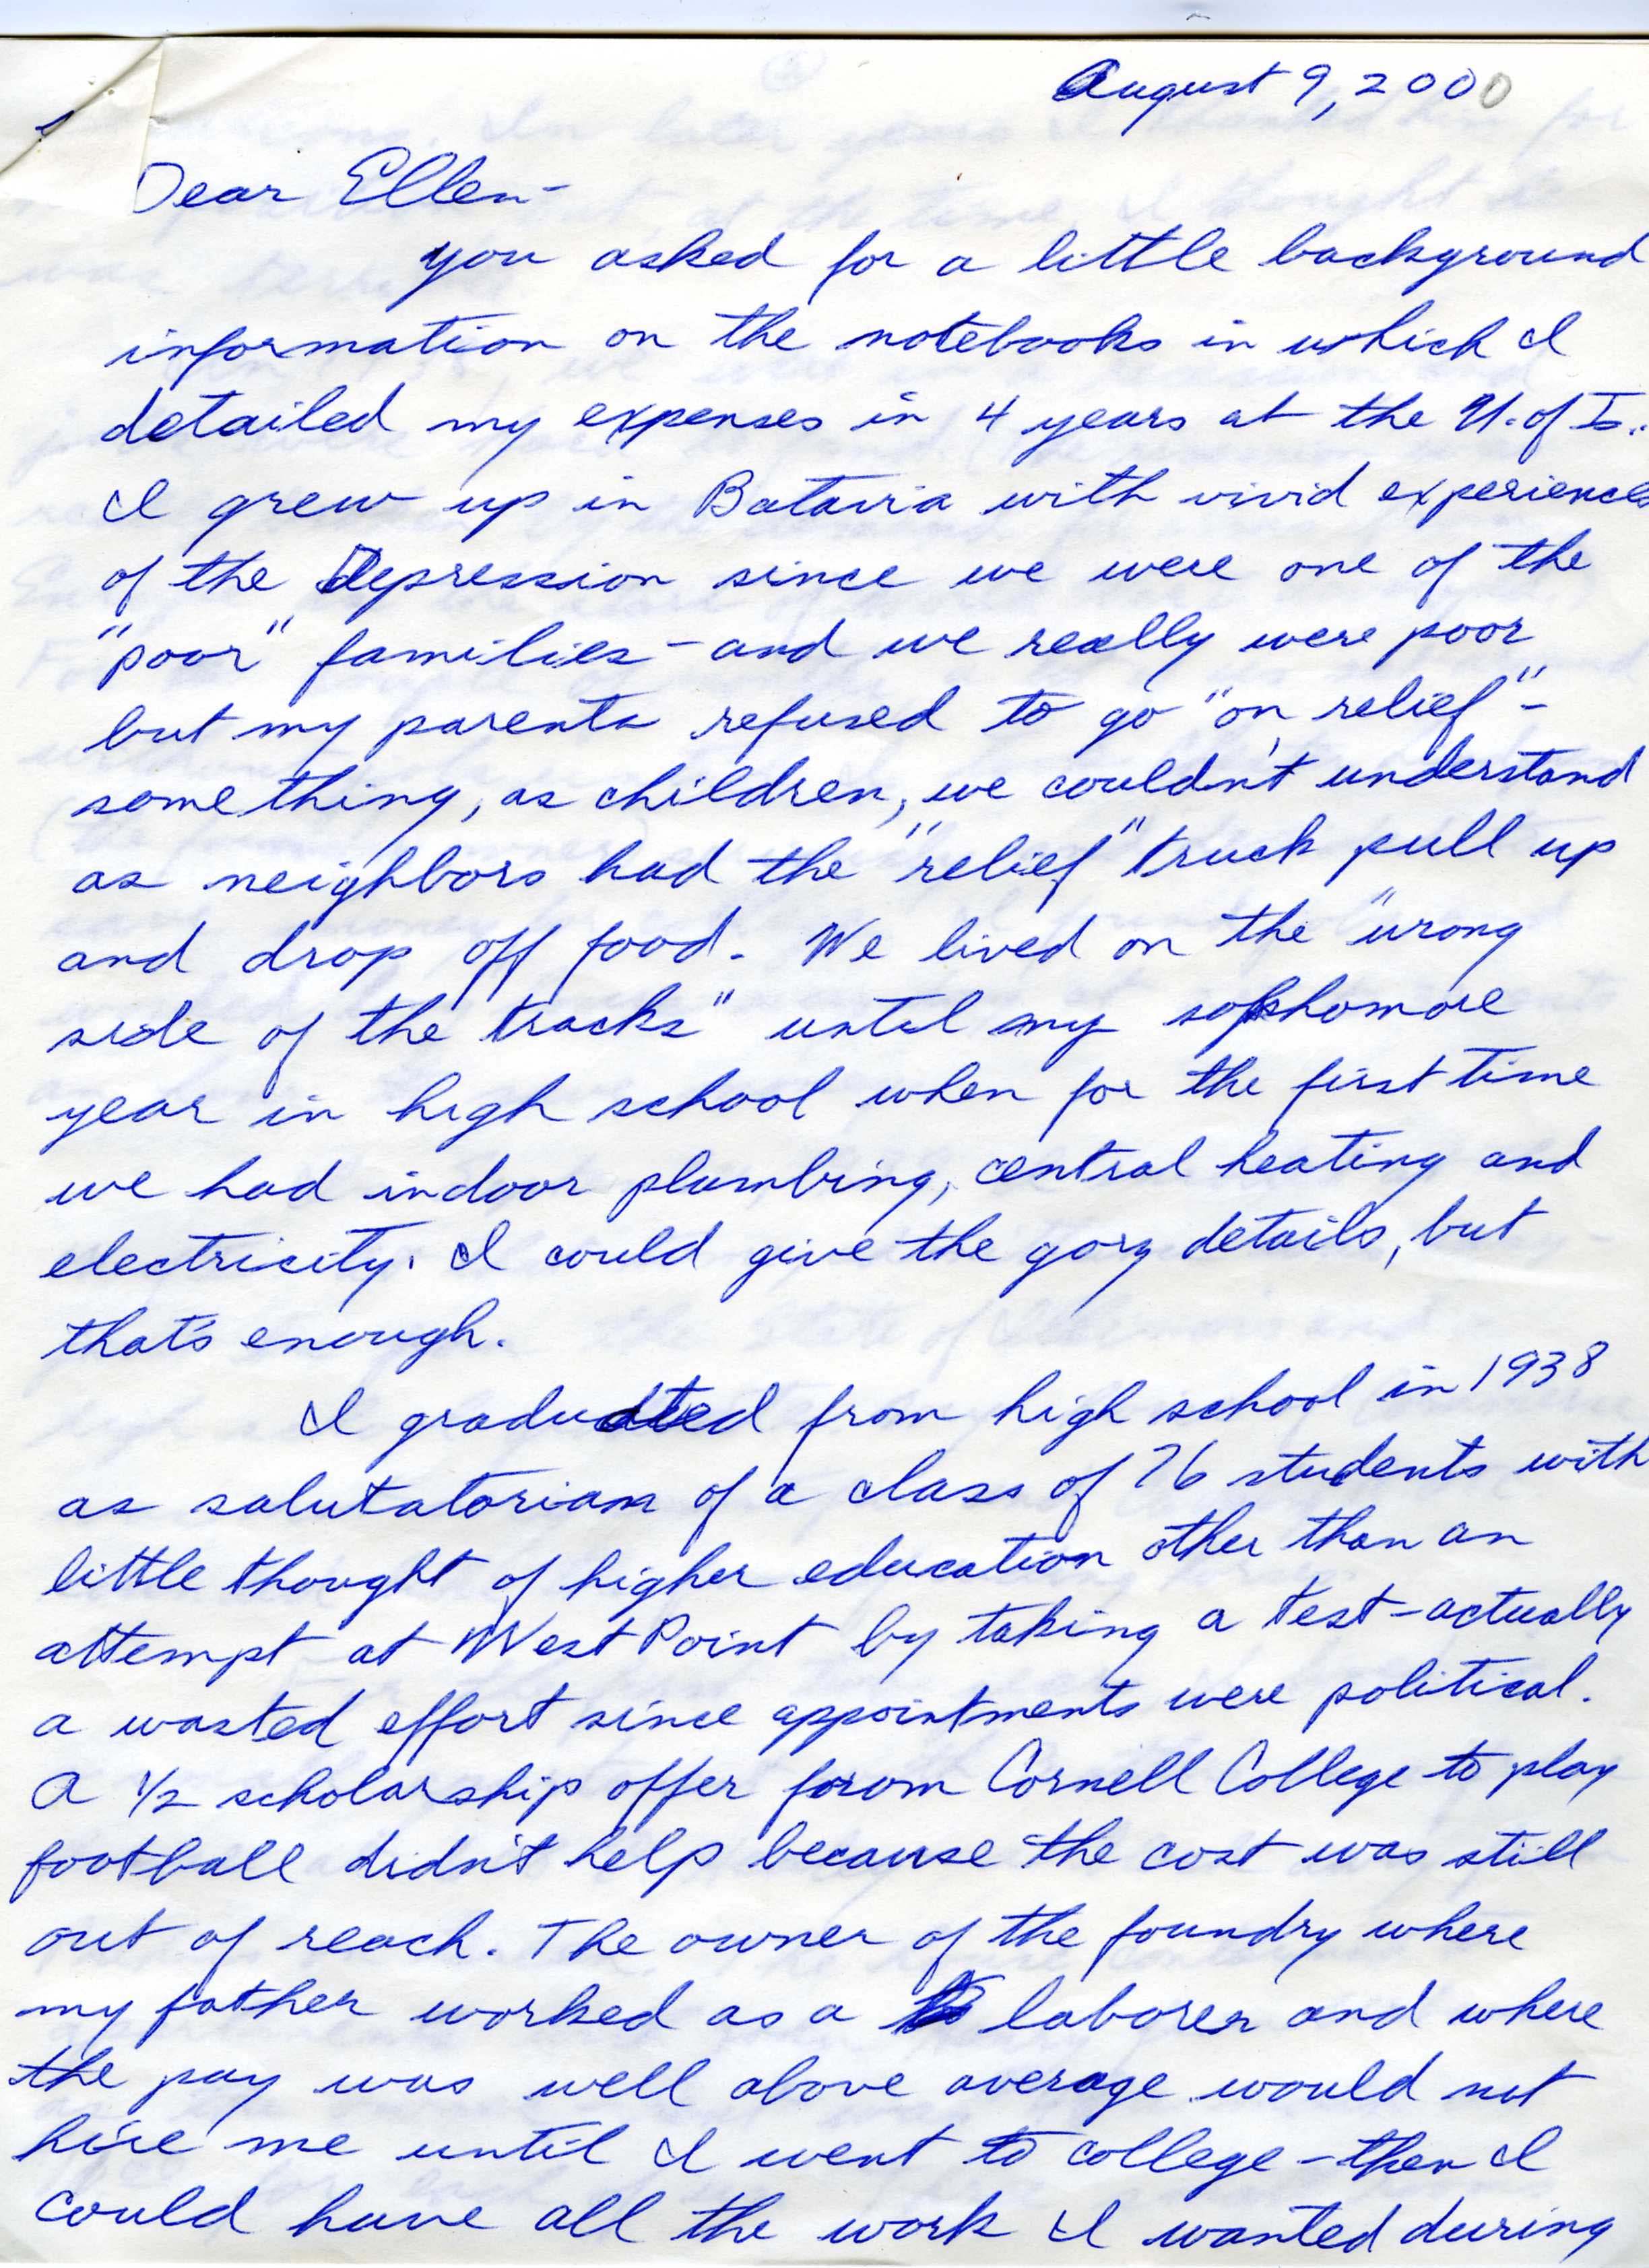 August 9, 2000
Dear Ellen-
you asked for a little background
information on the notebooks in which I
detailed my expenses in 4 years at the U. of I..
I grew up in Batavia with vivid experiences
of the Depression since we were one of the
"poor" families - and we really were poor
but my parents refused to go "on relief" -
something, as children, we couldn't understand
as neighbors had the "relief" truck pull up
and drop off food. We lived on the "wrong
side of the tracks" until my sophomore
year in high school when for the first time
we had indoor plumbing, central heating and
electricity. I could give the gory details, but
that's enough.
I graduated from high school in 1938
as salutatorian of a class of 76 students with
little thought of higher education other than an
attempt at West Point by taking a test - actually
a wasted effort since appointments were political.
A 1/2 scholarship offer forom Cornell College to play
football didn't help because the cost was still
out of reach. The owner of the foundry where
my father worked as a laborer and where
the pay was well above average would not
hire me until I went to college - then I
could have all the work I wanted during